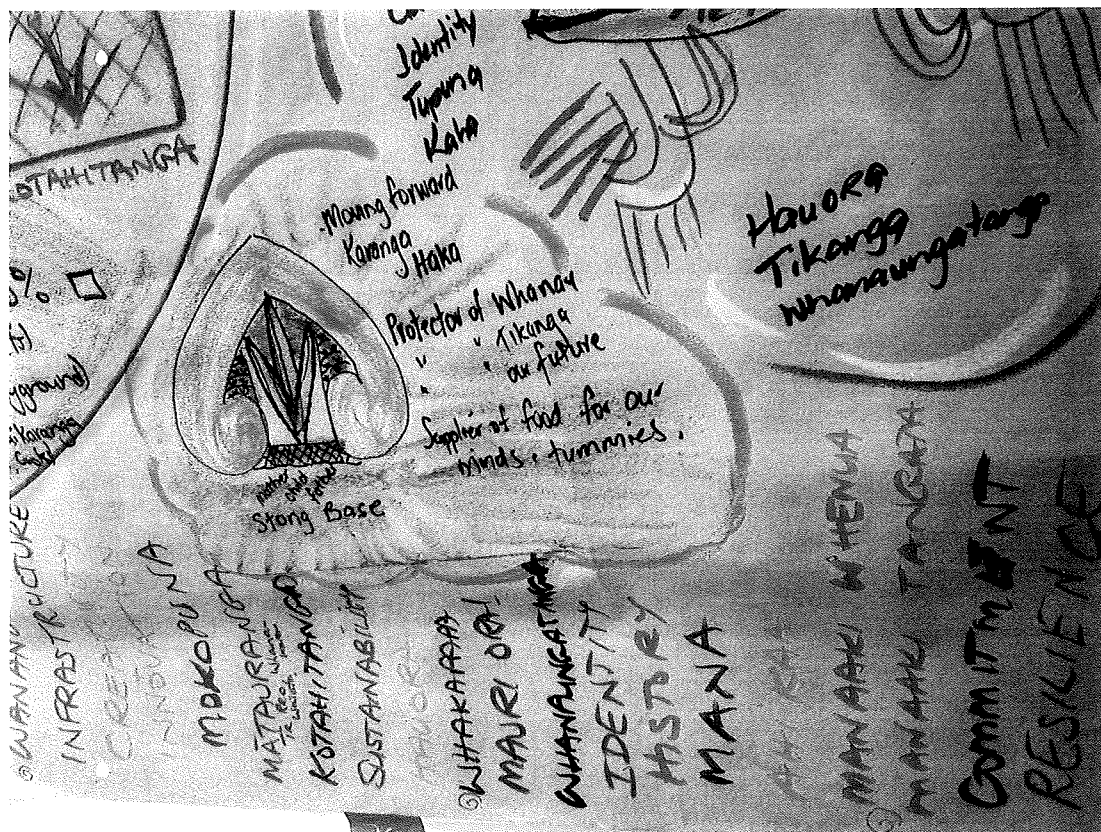 Identity
Tupuna
Kaha
OTAHITANGA
Moving forward
Karanga
Haka
Protector of Whanau
" " Tikanga
" " our future
Supplier of food for our
minds & tummies.
mother
child
father
Strong Base
Hauora
Tikanga
Whanaungatanga
WANANGA
INFRASTRUCTURE
CREATION
INNOVATION
MOKOPUNA
MĀTAURANGA
TE REO
KOTAHITANGA
SUSTAINABILITY
HAUORA
MAURI ORA!
WHANAUNGATANGA
IDENTITY
HISTORY
MANA
MANAAKI WHENUA
MANAAKI TANGATA
COMMITMENT
RESILIENCE